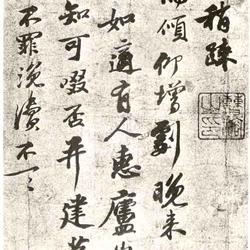 稍疎
傾仰增劇晚来
如適有人惠廬山
知可啜否并建茗
不罪浼瀆不一一